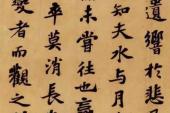 遺響於悲
知夫水與月
未嘗往也
卒莫消長
變者而觀之